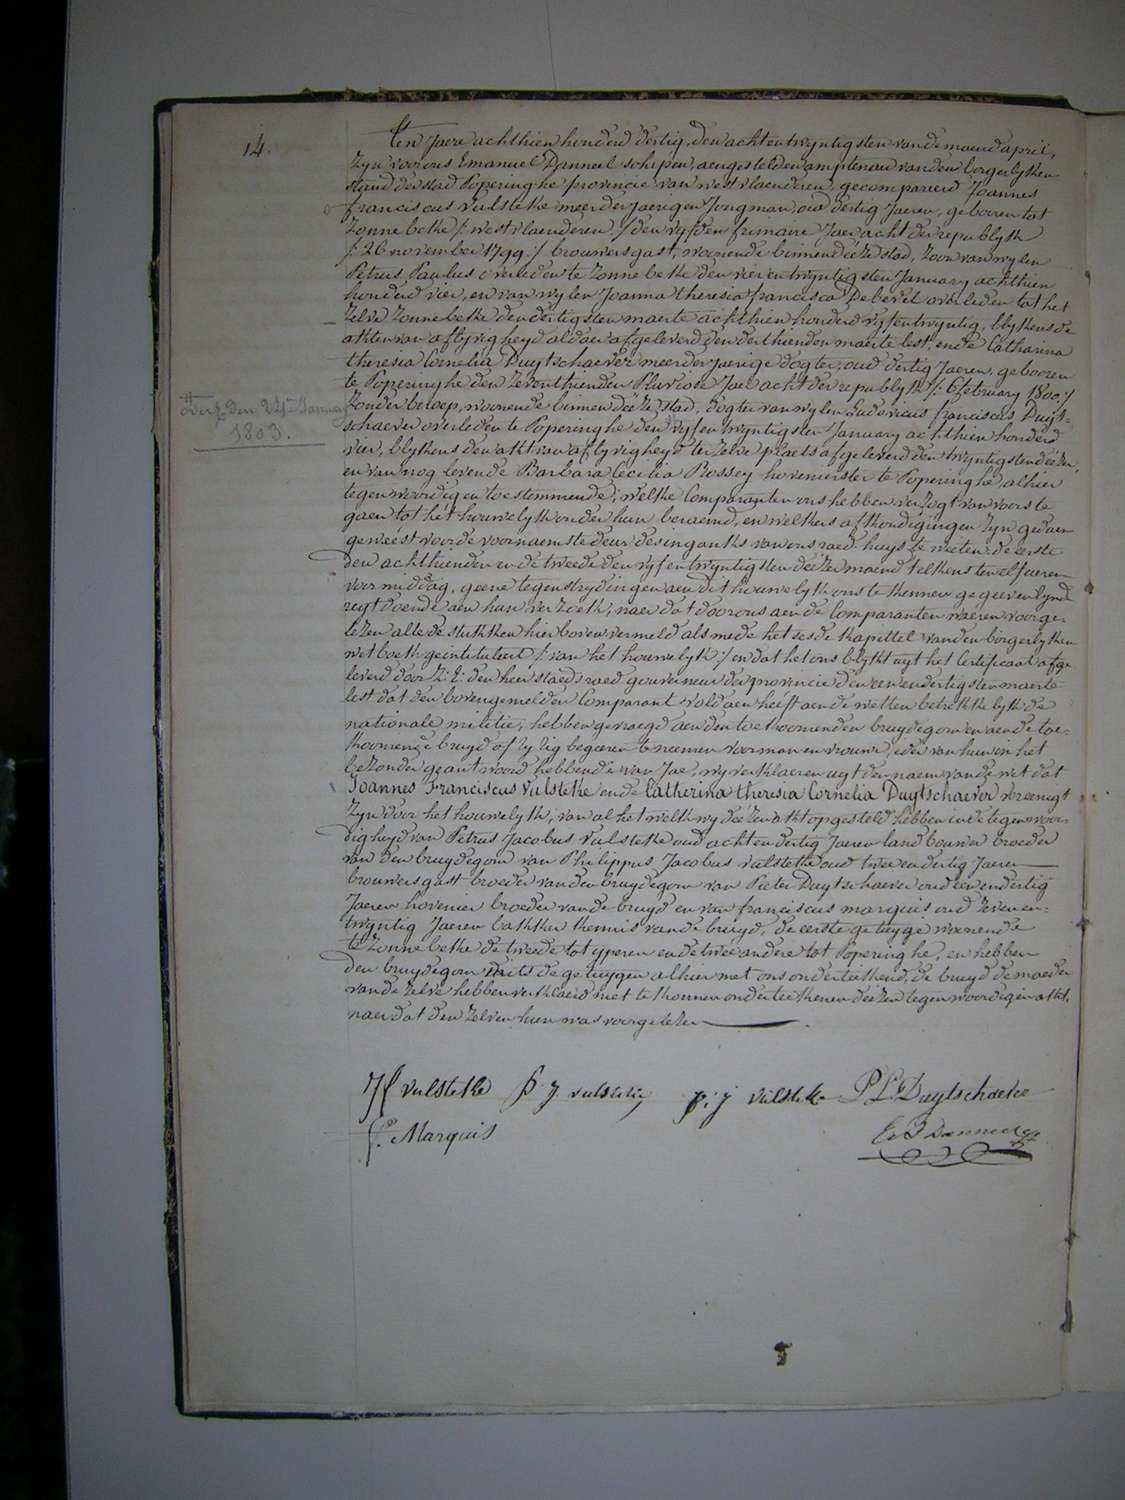 14.
Ten Jaere achthien honderd dertig, den achtentwyntigsten van de maend april,
zyn voor ons Emanuel Danneel schepen, aengestelden amptenaer van den borgerlyken
stand der stad Poperinghe provincie van westvlaenderen, gecompareerd Joannes
franciscus Vulsteke meerderjaerigen Jongman, oud dertig Jaeren, gebooren tot
Zonnebeke /: westvlaenderen :/ den vyfden frimaire Jaer acht der republyk
/: 26 november 1799 :/ brouwersgast, woonende binnen deéze stad, zoon van wylen
Petrus Paulus overleden te Zonnebeke den vier en twyntigsten January achthien
honderd vier, en van wylen Joanna theresia francisca Debevel overleden tot het
zelve Zonnebeke den dertigsten maerte achthien honderd vyfentwyntig, blykens de
akten van aflyvigheyd aldaer afgeleverd den derthienden maerte lest, ende Catharina
theresia Cornelia Duytschaever meerderjaerige dogter, oud dertig Jaeren, gebooren
te Poperinghe den zeventhienden Pluviose Jaer acht der republyk /: 6 february 1800 :/
zonder beroep, woonende binnen deéze stad, dogter van wylen Ludovicus franciscus Duyt-
den 24ste January
1803.
schaever overleden te Poperinghe den vyfentwyntigsten January achthien honderd
vier, blykens den akt van aflyvigheyd ter zelve plaets afgeleverd den twyntigsten deézer,
en van nog levende Barbara Cecilia Rossey hovenierster te Poperinghe, alhier
tegenwoordig en toestemmende; welke Comparanten ons hebben verzogt van voors te
gaen tot het houwelyk onder hun beraemd, en welkers afkondigingen zyn gedaen
geweést voor de voornaemste deur des inganks van ons raed-huys te weéten: de eerste
den achthienden en de tweede den vyfentwyntigsten deézer maend telkens ten elf ueren
voormiddag, geene tegenstrydingen aen dit houwelyk ons te kennen gegeeven zynde
regt doende aen hun verzoek, naer dat door ons aen de Comparanten waeren voorge-
lezen alle de stukken hier boven vermeld als mede het sesde kapittel van den borgerlyken
wetboek geintituleert /: van het houwelyk :/ en dat het ons blykt uyt het Certificaet afge-
leverd door Z: E: den heer staedsraed gouverneur der provincie den een en dertigsten maerte
lest dat den bovengemelden Comparant voldaen heeft aen de wetten betrekkelyk de
nationale militie; hebben gevraegd aen den toekoomenden bruydegom en aen de toe-
koomende bruyd of zy lig begeeren te neemen voor man en vrouwe, ider van hun in het
bezonder geantwoord hebbende van Jae, wy verklaeren uyt den naem van de wet dat
Joannes Franciscus Vulsteke ende Catherina theresia Cornelia Duytschaever vereenigt
zyn door het houwelyk; van al het welk wy deézen akt opgesteld hebben in de tegenwoor-
digheyd van Petrus Jacobus Vulsteke oud achtendertig Jaeren landbouwer broeder
van den bruydegom van Philippus Jacobus Vulsteke oud twee en dertig Jaeren
brouwersgast broeder van den bruydegom van Pieter Duytschaever oud een en dertig
Jaeren hovenier broeder van de bruyd en van franciscus marquis oud zeven en-
twyntig Jaeren bakker kennis van de bruyd, de eerste getuyge woonende
te Zonnebeke de tweede tot yperen en de twee andere tot Poperinghe, en hebben
den bruydegom mits de getuygen alhier met ons onderteekend, de bruyd de moeder
van de zelve hebben verklaerd niet te konnen onderteekenen deézen tegenwoordigen akt,
naer dat den zelven hun was voorgelezen
Jf vulsteke P. J. vulsteke p: j vulsteke P L Duytschaever
f: Marquis